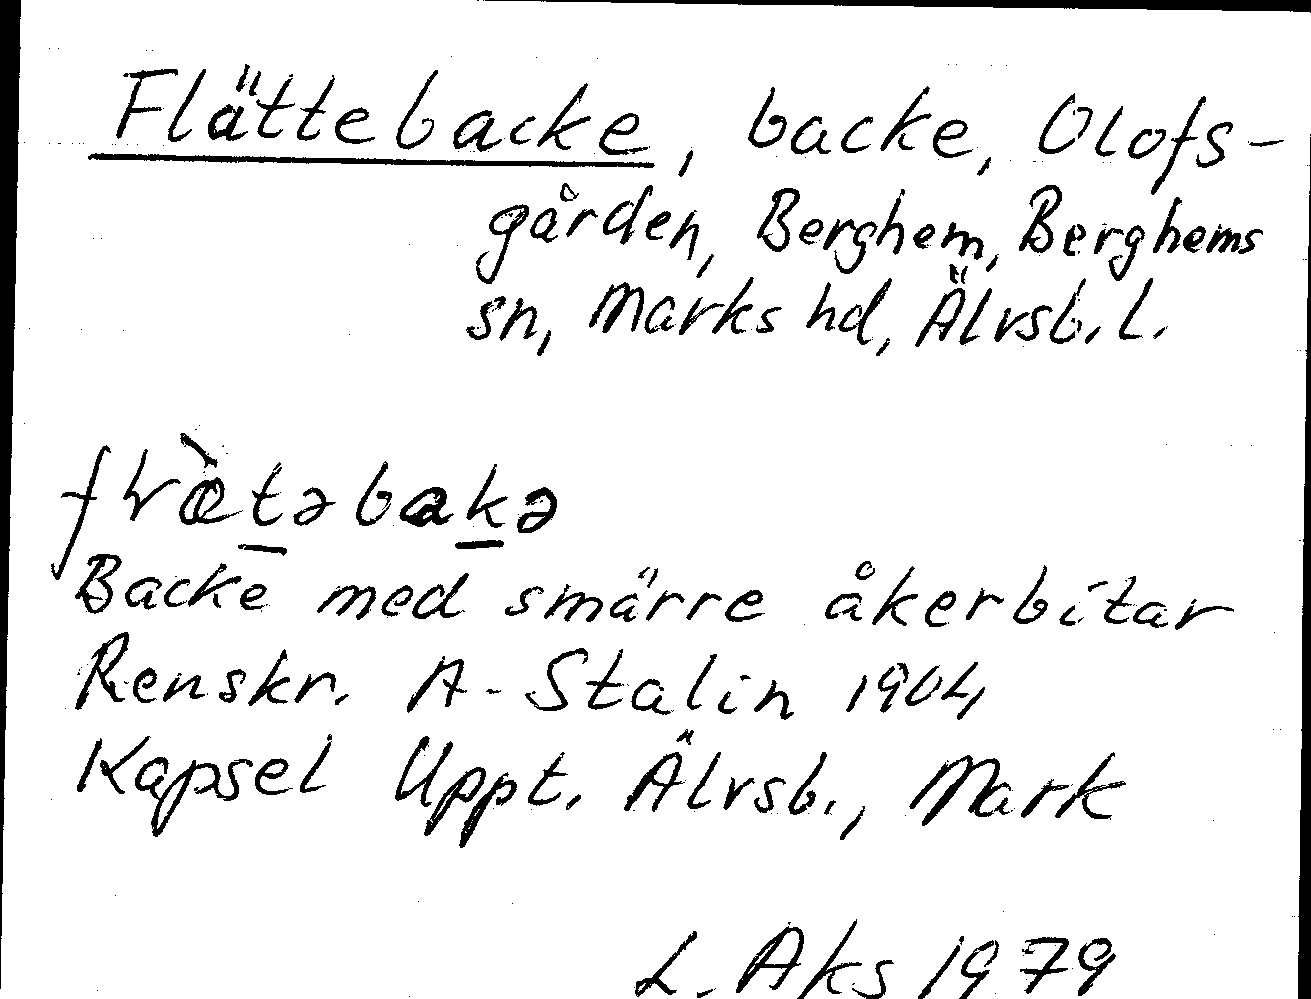 Flättebacke, backe, Olofs-
gården, Berghem, Berghems
sn, Marks hd, Älvsb. l.
Backe med smärre åkerbitar
Renskr. A. Stalin 1904
Kapsel Uppt. Älvsb., Mark
L. Aks 1979